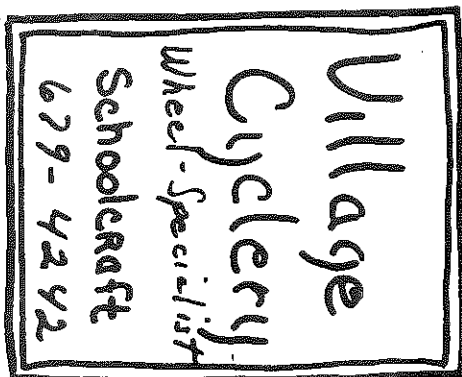 Village
Cyclery
Wheel-Specialist
Schoolcraft
679-4242